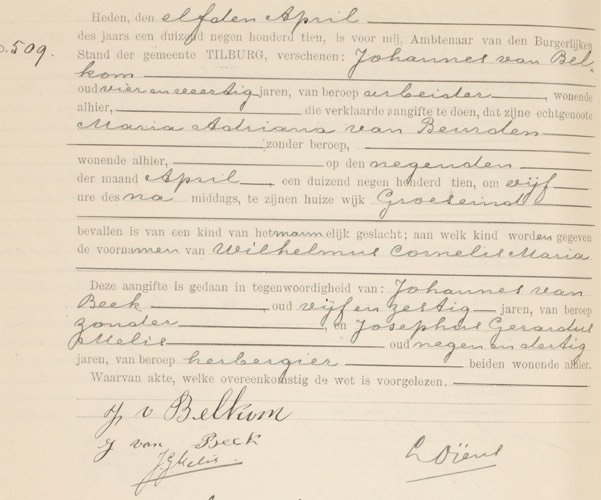 Heden, den elfden April
des jaars een duizend negen honderd tien, is voor mij, Ambtenaar van den Burgerlijken
o. 509. Stand der gemeente TILBURG, verschenen: Johannes van Bel-
kom
oud vier en veertig jaren, van beroep arbeider, wonende
alhier, die verklaarde aangifte te doen, dat zijne echtgenoote
Maria Adriana van Beurden
zonder beroep,
wonende alhier, op den negenden
der maand April, een duizend negen honderd tien, om vijf
ure des na middags, te zijnen huize wijk Groeseind
bevallen is van een kind van het mannelijk geslacht; aan welk kind worden gegeven
de voornamen van Wilhelmus Cornelis Maria
Deze aangifte is gedaan in tegenwoordigheid van: Johannes van
Beek, oud vijf en zestig jaren, van beroep
zonder, en Josephus Gerardus
Melis oud negen en dertig
jaren, van beroep herbergier beiden wonende alhier.
Waarvan akte, welke overeenkomstig de wet is voorgelezen.
J v Belkom
J van Beek
J G Melis